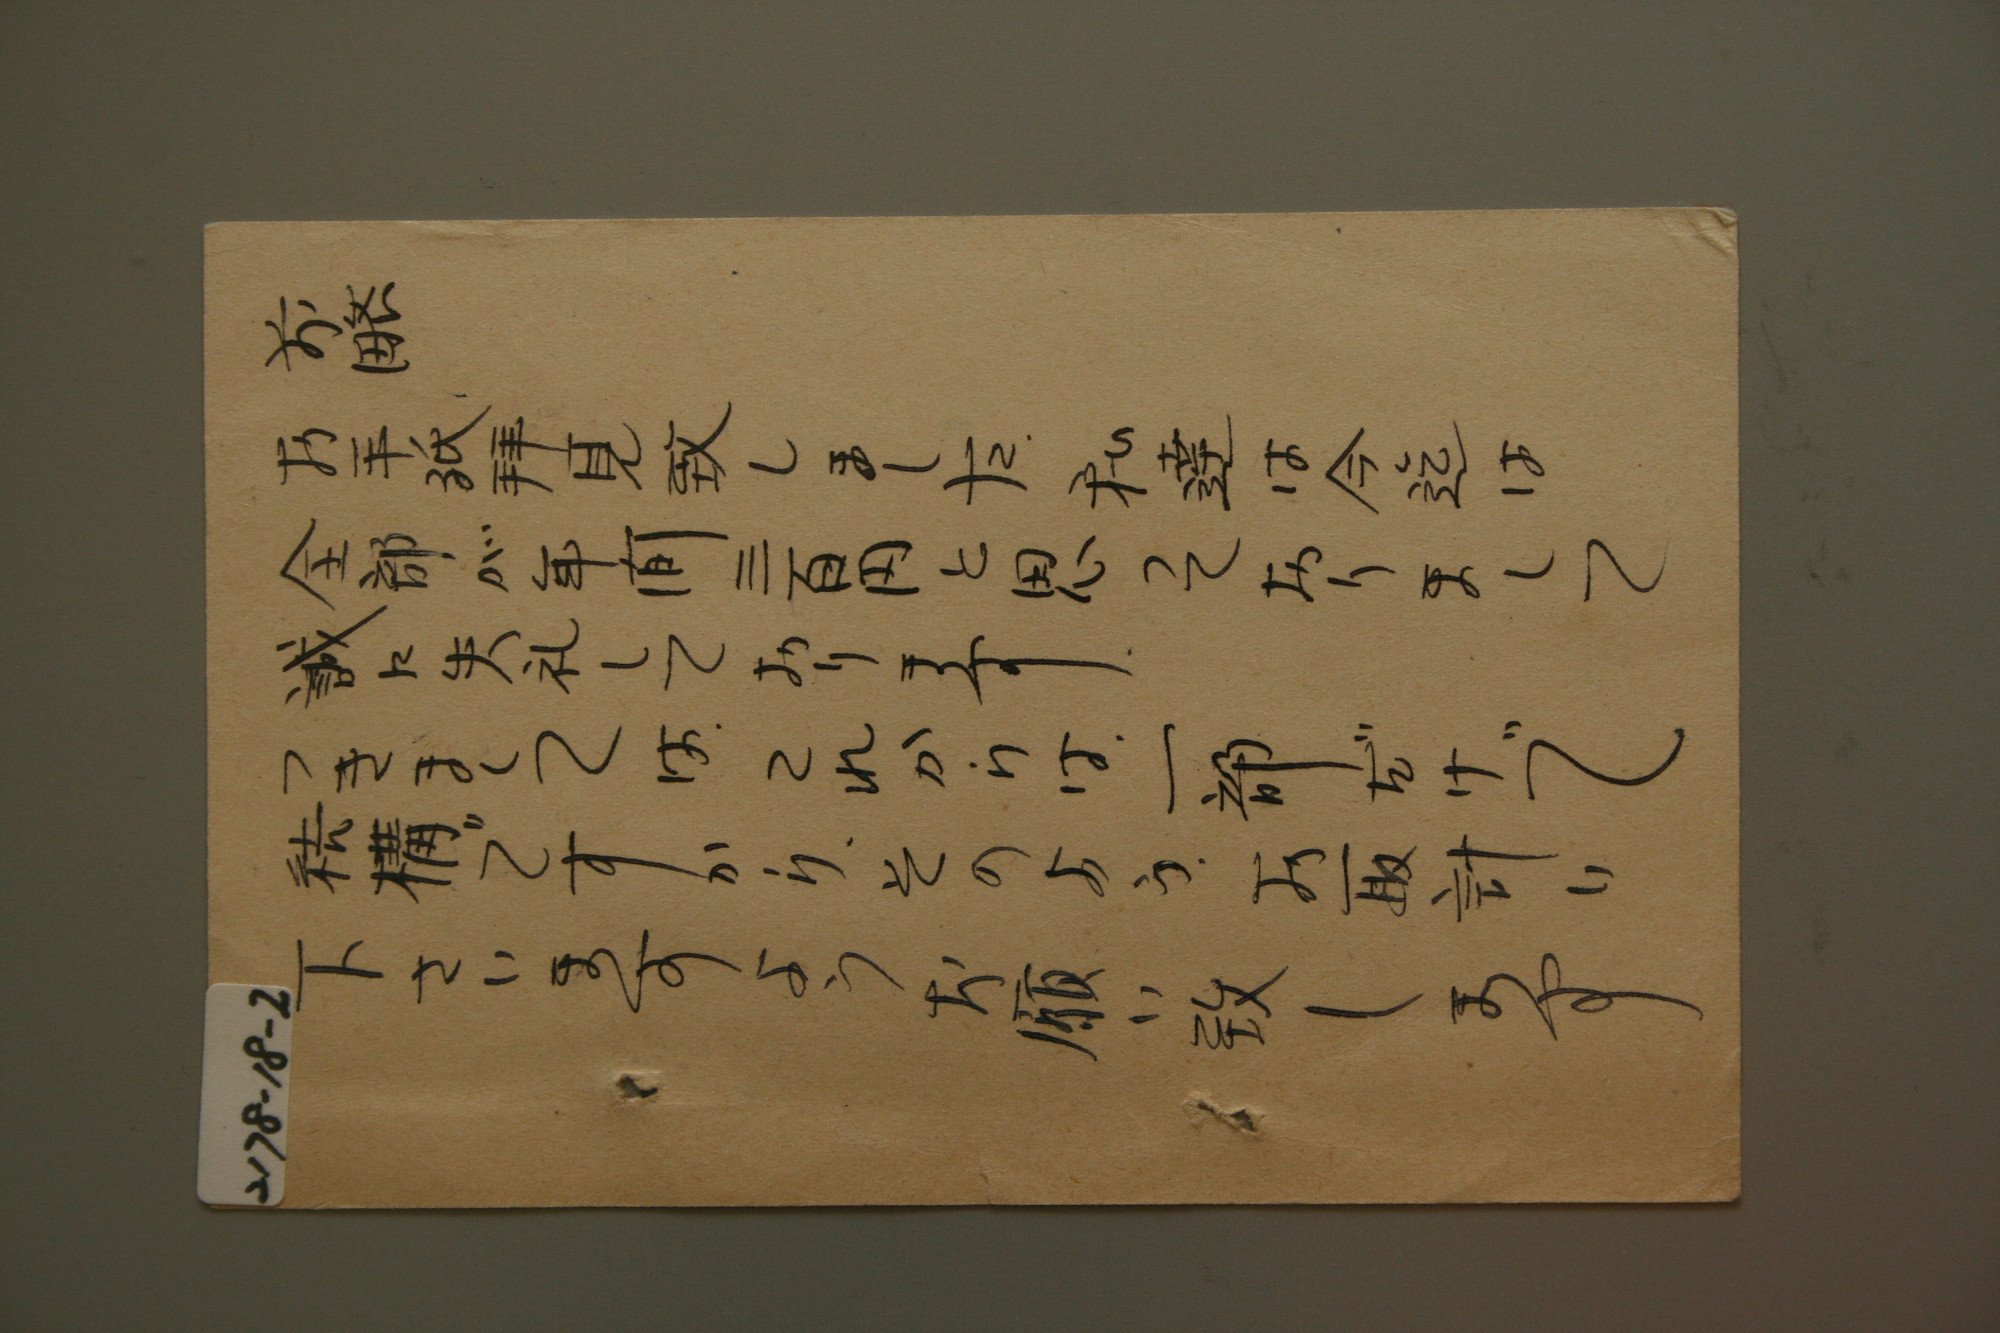 前略
お手紙拝見致しました。私達は今迄は
全部が年間三百円と思っておりまして
誠に失礼しております。
つきましては、これからは、一部だけで
結構ですから、そのよう、お取計い
下さいますようお願い致します
2178-18-2